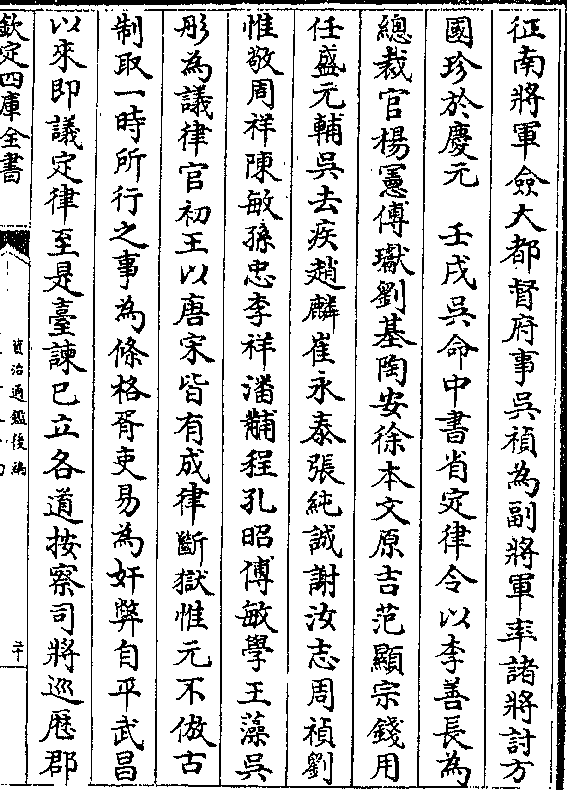 征南將軍僉大都督府事吳禎為副將軍率諸將討方
國珍於慶元　壬戌吳命中書省定律令以李善長為
總裁官楊憲傅瓛劉基陶安徐本文原吉范顯宗錢用
任盛元輔吳去疾趙麟崔永泰張純誠謝汝志周禎劉
惟敬周祥陳敏孫忠李祥潘黼程孔昭傅敏學王藻吳
彤為議律官初王以唐宋皆有成律斷獄惟元不倣古
制取一時所行之事為條格胥吏易為奸弊自平武昌
以來即議定律至是臺諫已立各道按察司將巡歷郡
欽定四庫全書
資治通鑑後編
二十